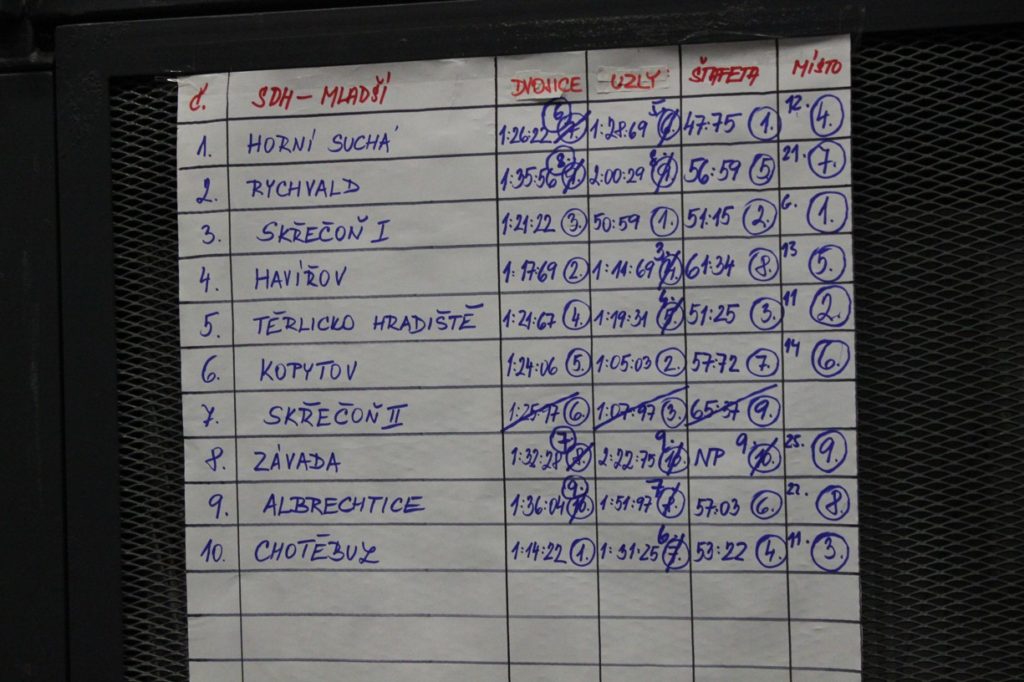 Č. SDH - MLADŠÍ DVOJICE UZLY ŠTAFETA MÍSTO
1. HORNÍ SUCHÁ 1:26:22 6 7. 1:28:69 5. 47:75 1. 12. 4.
2. RYCHVALD 1:35:56 8. 9. 2:00:29 8. 9. 56:59 5 21. 7.
3. SKŘEČOŇ I 1:21:22 3. 50:59 1. 51:15 2. 6. 1.
4. HAVÍŘOV 1:17:69 2. 1:14:69 3. 4. 61:34 8. 13 5.
5. TĚRLICKO HRADIŠTĚ 1:21:67 4. 1:19:31 4. 5. 51:25 3. 11 2.
6. KOPYTOV 1:24:06 5. 1:05:03 2. 57:72 7. 14 6.
7. SKŘEČOŇ II 1:25:17 6. 1:07:97 3. 65:37 9.
8. ZÁVADA 1:32:28 7 8. 2:22:75 9. 10. NP 9. 10. 25. 9.
9. ALBRECHTICE 1:36:04 9. 10. 1:51:97 7. 8. 57:03 6. 22. 8.
10. CHOTĚBUZ 1:14:22 1. 1:31:25 6. 7. 53:22 4. 11. 3.